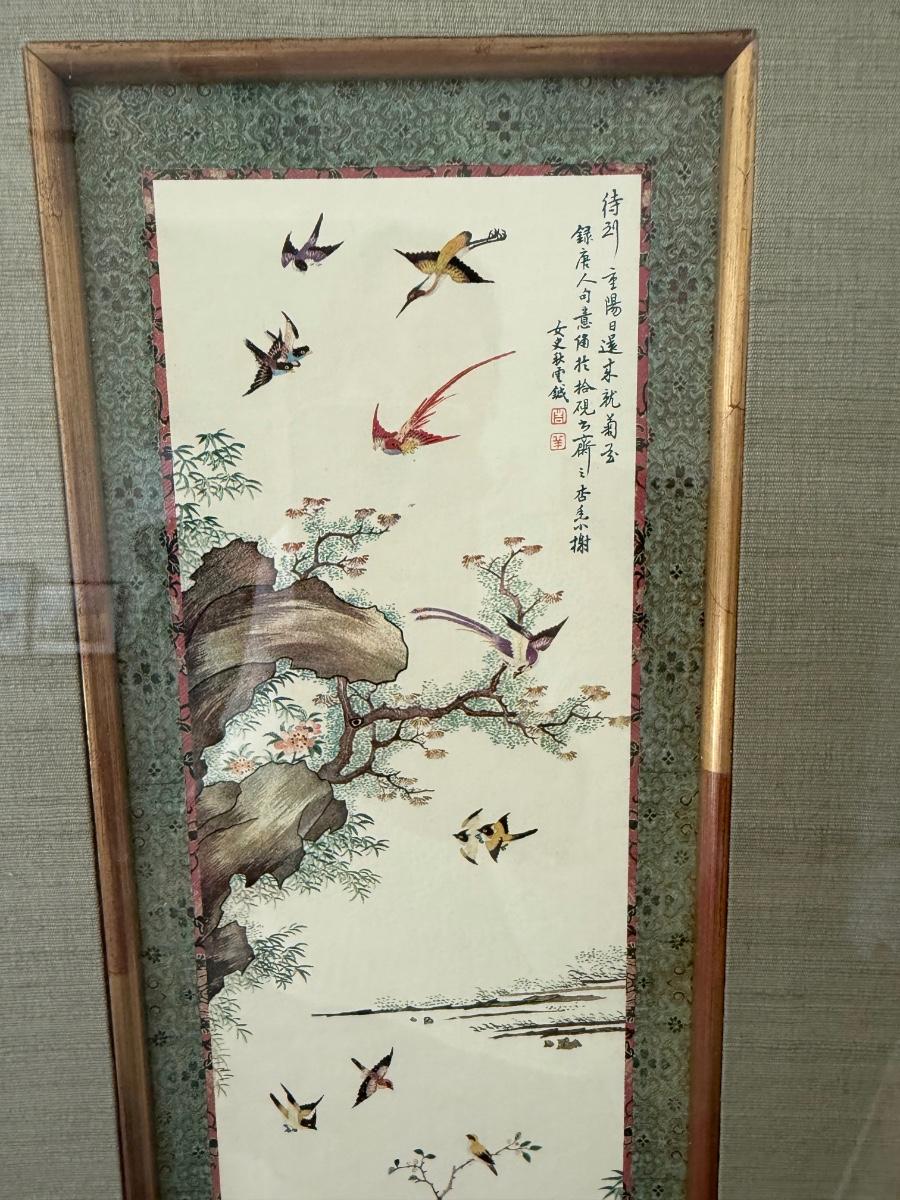 待到重陽日還來就菊花
錄唐人句意繡於拾硯書齋之杏香小榭
女史秋雲鉞